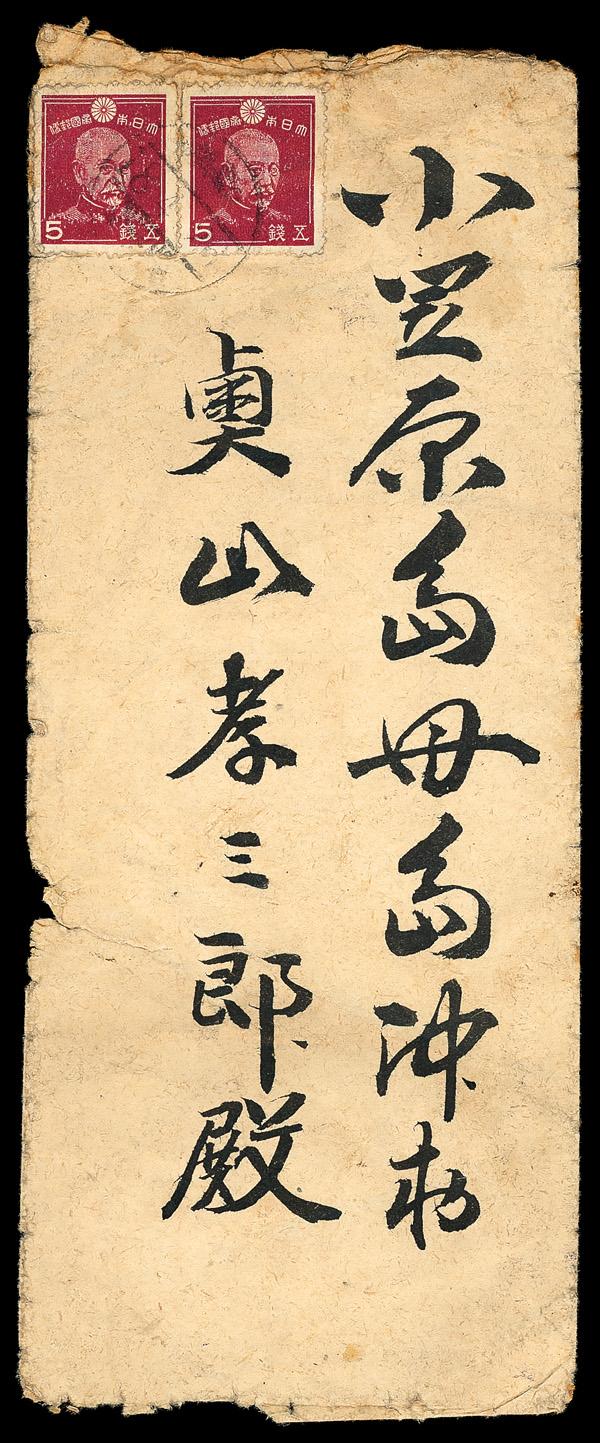 小笠原島母島沖村
奥山孝三郎殿
大日本帝國郵便
5 五錢
大日本帝國郵便
5 五錢